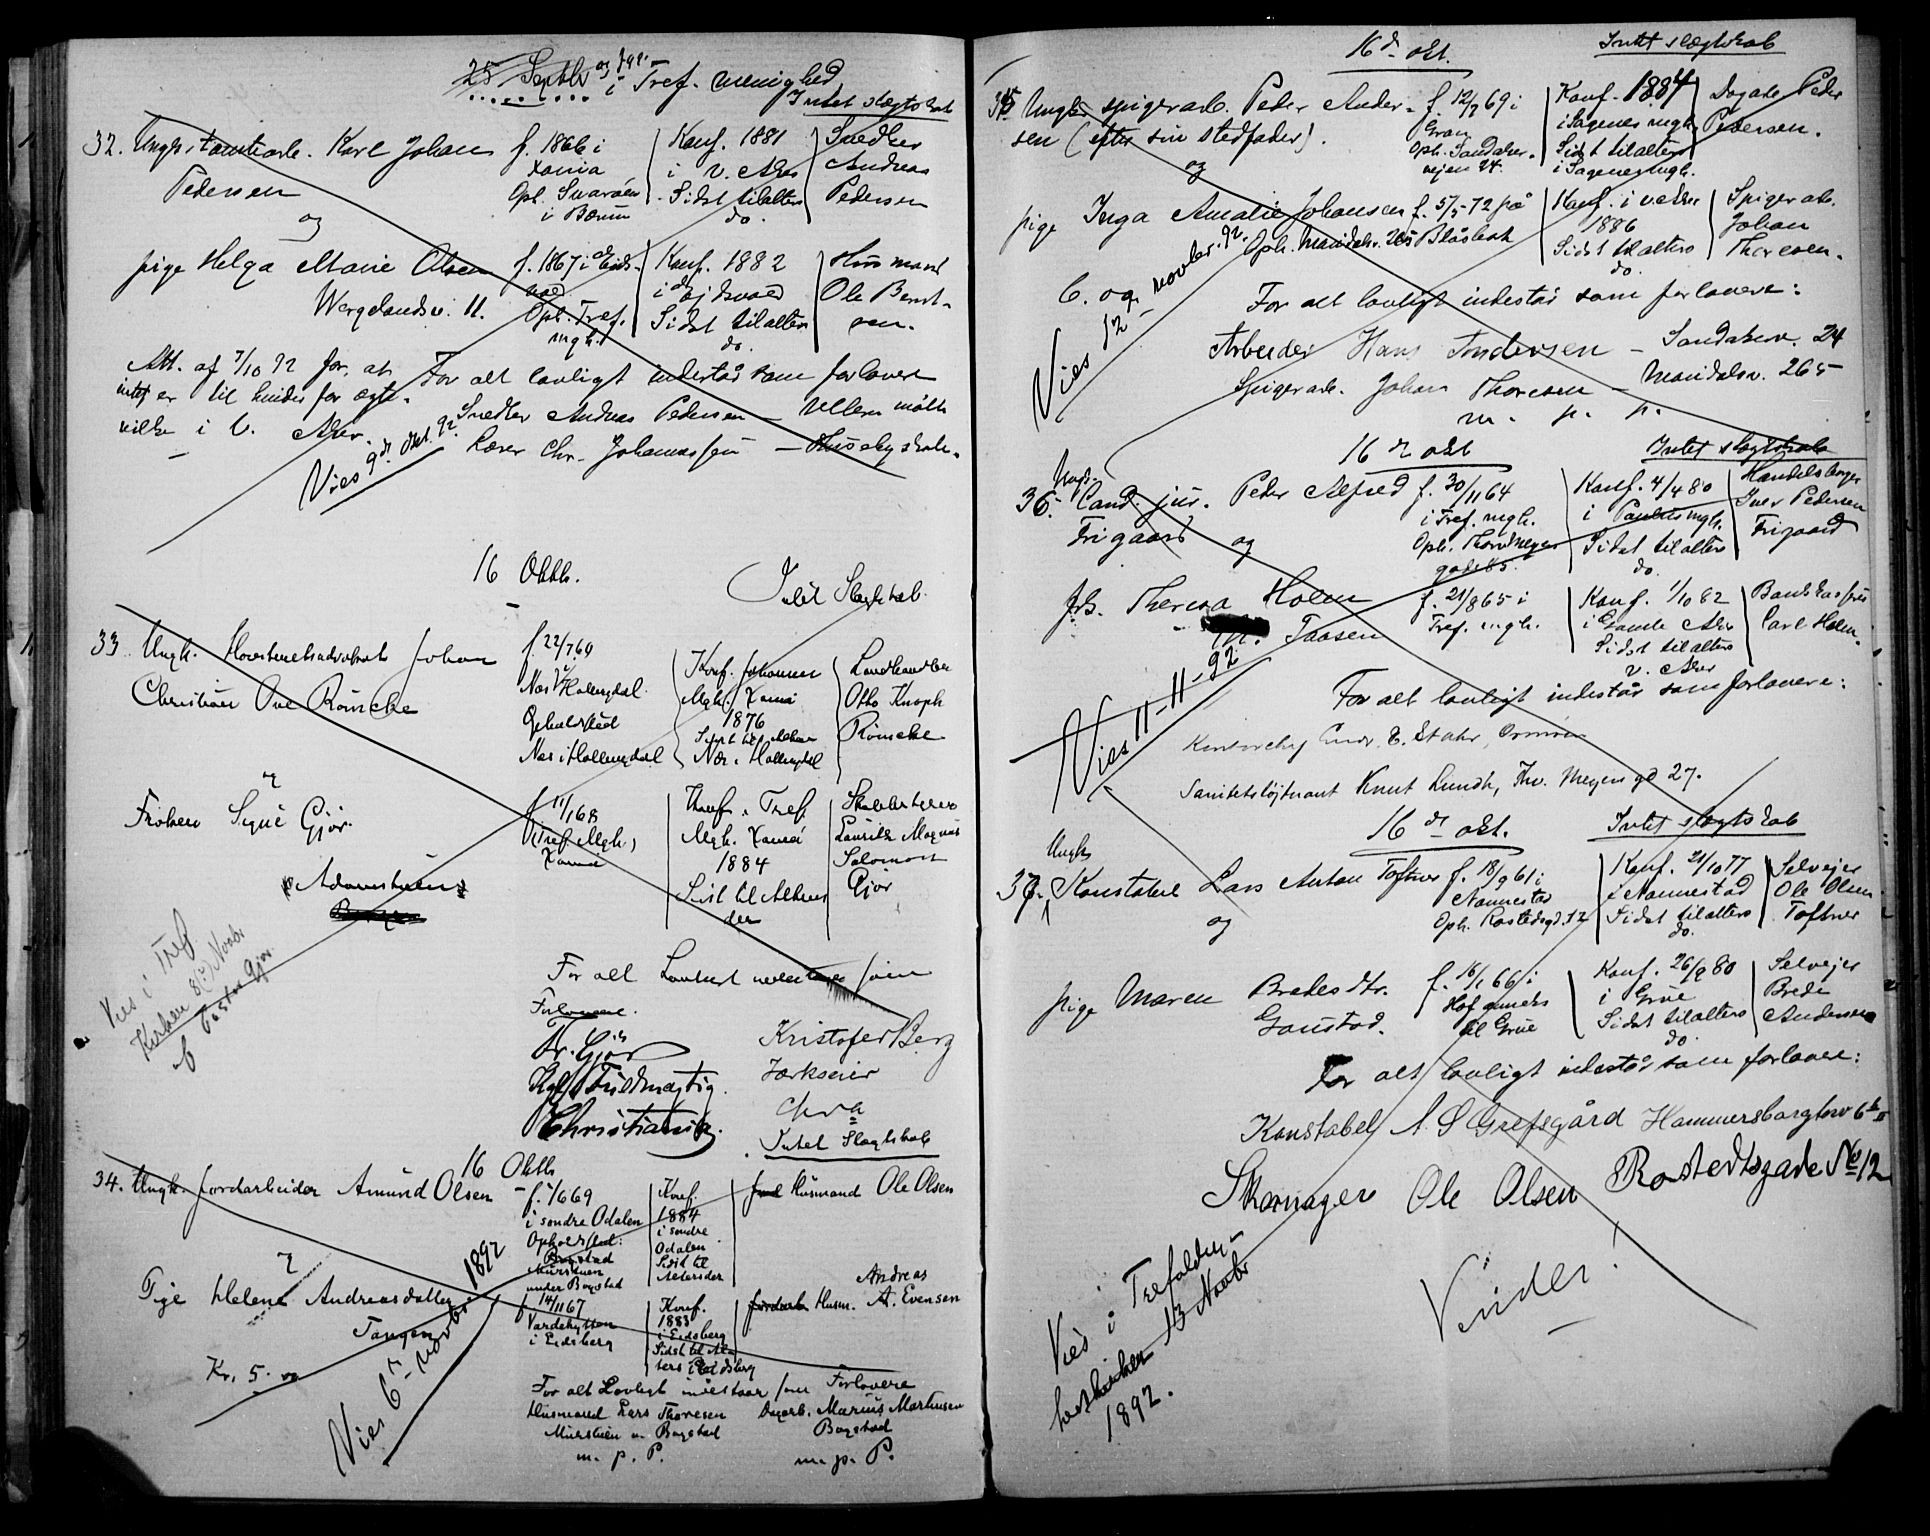 25 Septbr og 9 i Tref. menighed
Intet slægtskab
32. Ungk. tomtearb. Karl Johan
Pedersen
f. 1866 i
Xania
Oph. Snarøen
i Bærum
Konf. 1881
i V. Aker
Sidst tilalters
do.
Snedker
Andreas
Pedersen
og
pige Helga Marie Olsen
Wergelandsv. 11.
f. 1867 i Eids-
vold
Oph. Tref.
mgh.
Konf. 1882
i Ejdsvold
Sidst tilalters
do.
Husmand
Ole Bernt-
sen.
Att. af 7/10 92 for, at
intet er til hinder for ægte-
vilke i V. Aker.
For alt lovligt indestår som forlovere
Snedker Andreas Pedersen – Ullern mølle
Lærer Chr. Johannessen – Husebyskole.
Vies 9de Okt. 92.
16 Oktb.
Intet Slægtskab.
33. Ungk. Høiesteretsadvokat Johan
Christian Ove Römcke
f 22/7 69
Næs i Hallingdal.
Opholdsted
Næs i Hallingdal
Konf. Johannes
Mgh. Xania
1876
Sidst til Alters
Næs i Hallingdal
Landhandler
Otto Knoph
Römcke
&
Frøken Signe Gjør.
Adamstuen
f 11/1 68
i Tref. Mgh.,
Xania
Konf. i Tref.
Mgh. Xania
1884
Sidst til Alters
der
Lauritz Magnus
Salomon
Gjør
Vies i Tref
Kirken 8(?) Novbr
af Pastor Gjør
For alt Lovligt indestaaes som
Forlovere.
Fr. Gjör
Kgl. Fuldmægtig.
Christiania.
Kristofer Berg
Chra
Intet Slægtskab
16 Oktb
34. Ungk. Jordarbeider Amund Olsen
f. 1/6 69
i søndre Odalen
Opholdsted:
Bogstad
under Bogstad
Konf.
1884
i søndre
Odalen
Sidst til
Alters der
Husmand Ole Olsen
&
Pige Helene Andreasdatter
Tangen
f 14/11 67
Vardehytten
i Eidsberg
Konf.
1883
i Eidsberg
Sidst til Al-
ters i Eidsberg
Andreas
Husm. A. Evensen
Kr. 5.
Vies 6te Novbr 1892
For alt Lovligt indestaar som Forlovere
Husmand Lars Thoresen
Bogstad
m. p. P.
Dagarb. Marius Martinsen
Bogstad
m. p. P.
16de okt.
Intet slægtskab
35 Ungk. spigerarb. Peder Ander-
sen (efter sin stedfader).
f. 12/7 69 i
Gran
Oph. Sandaker-
vejen 24.
Konf. 1884
i Sagenes mgh.
Sidst tilalters
i Sagenes mgh.
Dagarb. Peder
Pedersen.
og
pige Inga Amalie Johansen
f. 5/5 72 på
Blåsbak
Oph. Maridalsv. 265
Konf. i v. Aker
1886
Sidst tilalters
do.
Spigerarb.
Johan
Thoresen.
Vies 12te novbr. 92.
For alt lovligt indestår som forlovere:
Arbeider Hans Andersen – Sandakerv. 24
Spigerarb. Johan Thoresen – Maridalsv. 265
m. p. p.
16de okt
Intet slægtskab
Ungk.
36. Cand. jur. Peder Alfred
Frigaard
f. 30/11 64
i Tref. mgh.
Oph. Thorv. Meyers
gade 85.
Konf. 4/4 80
i Paulus mgh.
Sidst tilalters
do.
Handelsborger
Iver Pedersen
Frigaard
og
frk. Theresa Holm
Taasen
f. 21/8 65 i
Tref. mgh.
Konf. 1/10 82
i Gamle Aker
Sidst tilalters
v. Aker
Carl Holm.
Vies 11-11-92
For alt lovligt indestår som forlovere:
Sanitetsløjtnant Knut Lundh, Thv. Meyers gd 27.
16de okt.
Intet slægtskab
Ungk.
37. Konstabel Lars Anton Toftner
f. 18/9 61 i
Nannestad
Oph. Rostedsgd. 12
Konf. 21/10 77
i Nannestad
Sidst tilalters
do.
Selvejer
Ole Olsen
Toftner
og
pige Maren Bredesdtr.
Gaustad.
f. 16/1 66 i
Hof anneks
til Grue
Konf. 26/9 80
i Grue
Sidst tilalters
do.
Selvejer
Brede
Andersen
For alt lovligt indestår som forlovere:
Konstabel A. S Grefsgård Hammersborgtorv 6b II
Skomager Ole Olsen Rostedtsgade No 12
Vies i Trefoldig-
hedskirken 13 Novbr
1892.
Vender!